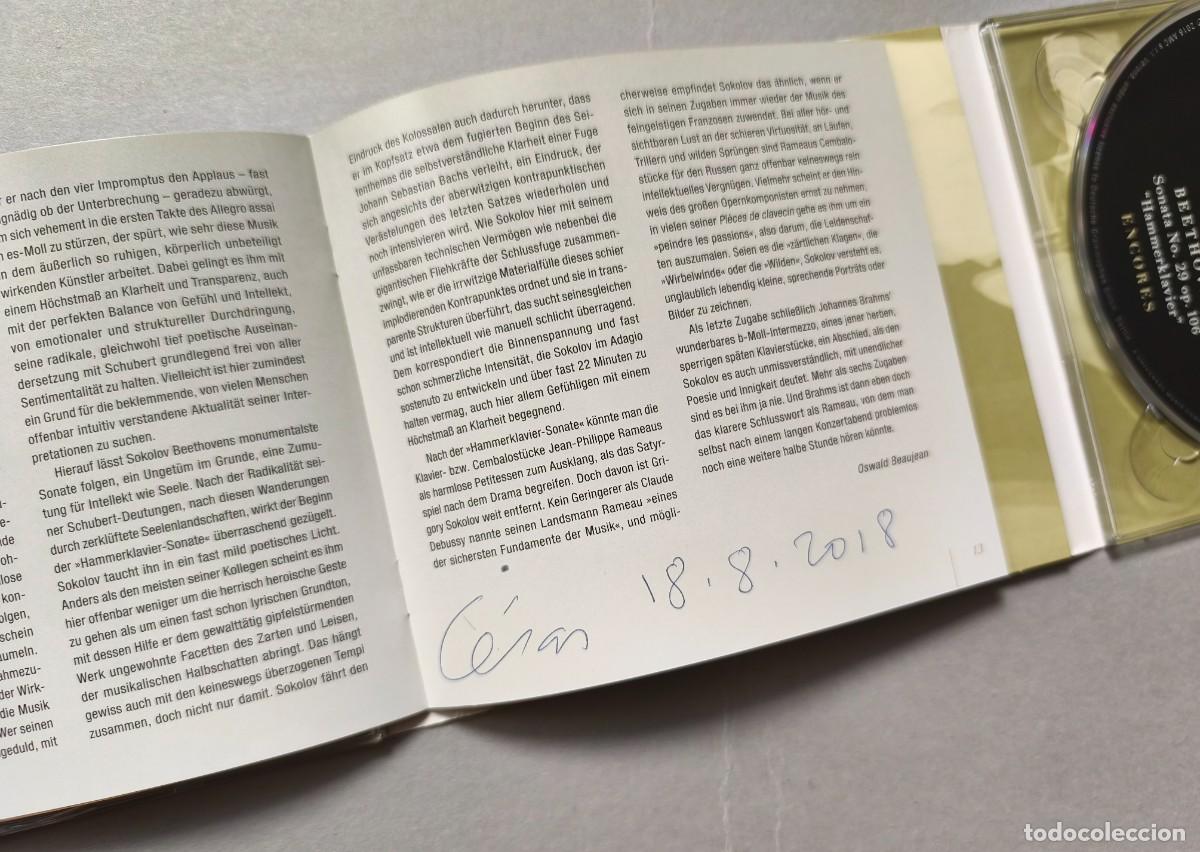 r er nach den vier Impromptus den Applaus – fast
gnädig ob der Unterbrechung – geradezu abwürgt,
m sich vehement in die ersten Takte des Allegro assai
n es-Moll zu stürzen, der spürt, wie sehr diese Musik
n dem äußerlich so ruhigen, körperlich unbeteiligt
wirkenden Künstler arbeitet. Dabei gelingt es ihm mit
einem Höchstmaß an Klarheit und Transparenz, auch
mit der perfekten Balance von Gefühl und Intellekt,
von emotionaler und struktureller Durchdringung,
seine radikale, gleichwohl tief poetische Auseinan-
dersetzung mit Schubert grundlegend frei von aller
Sentimentalität zu halten. Vielleicht ist hier zumindest
ein Grund für die beklemmende, von vielen Menschen
offenbar intuitiv verstandene Aktualität seiner Inter-
pretationen zu suchen.
Hierauf lässt Sokolov Beethovens monumentalste
Sonate folgen, ein Ungetüm im Grunde, eine Zumu-
tung für Intellekt wie Seele. Nach der Radikalität sei-
ner Schubert-Deutungen, nach diesen Wanderungen
durch zerklüftete Seelenlandschaften, wirkt der Beginn
der »Hammerklavier-Sonate« überraschend gezügelt.
Sokolov taucht ihn in ein fast mild poetisches Licht.
Anders als den meisten seiner Kollegen scheint es ihm
hier offenbar weniger um die herrisch heroische Geste
zu gehen als um einen fast schon lyrischen Grundton,
mit dessen Hilfe er dem gewalttätig gipfelstürmenden
Werk ungewohnte Facetten des Zarten und Leisen,
der musikalischen Halbschatten abringt. Das hängt
gewiss auch mit den keineswegs überzogenen Tempi
zusammen, doch nicht nur damit. Sokolov fährt den
Eindruck des Kolossalen auch dadurch herunter, dass
er im Kopfsatz etwa dem fugierten Beginn des Sei-
tenthemas die selbstverständliche Klarheit einer Fuge
Johann Sebastian Bachs verleiht, ein Eindruck, der
sich angesichts der aberwitzigen kontrapunktischen
Verästelungen des letzten Satzes wiederholen und
noch intensivieren wird. Wie Sokolov hier mit seinem
unfassbaren technischen Vermögen wie nebenbei die
gigantischen Fliehkräfte der Schlussfuge zusammen-
zwingt, wie er die irrwitzige Materialfülle dieses schier
implodierenden Kontrapunktes ordnet und sie in trans-
parente Strukturen überführt, das sucht seinesgleichen
und ist intellektuell wie manuell schlicht überragend.
Dem korrespondiert die Binnenspannung und fast
schon schmerzliche Intensität, die Sokolov im Adagio
sostenuto zu entwickeln und über fast 22 Minuten zu
halten vermag, auch hier allem Gefühligen mit einem
Höchstmaß an Klarheit begegnend.
Nach der »Hammerklavier-Sonate« könnte man die
Klavier- bzw. Cembalostücke Jean-Philippe Rameaus
als harmlose Petitessen zum Ausklang, als das Satyr-
spiel nach dem Drama begreifen. Doch davon ist Gri-
gory Sokolov weit entfernt. Kein Geringerer als Claude
Debussy nannte seinen Landsmann Rameau »eines
der sichersten Fundamente der Musik«, und mögli-
cherweise empfindet Sokolov das ähnlich, wenn er
sich in seinen Zugaben immer wieder der Musik des
feingeistigen Franzosen zuwendet. Bei aller hör- und
sichtbaren Lust an der schieren Virtuosität, an Läufen,
Trillern und wilden Sprüngen sind Rameaus Cembalo-
stücke für den Russen ganz offenbar keineswegs rein
intellektuelles Vergnügen. Vielmehr scheint er den Hin-
weis des großen Opernkomponisten ernst zu nehmen,
in vielen seiner Pièces de clavecin gehe es ihm um ein
»peindre les passions«, also darum, die Leidenschaf-
ten auszumalen. Seien es die »zärtlichen Klagen«, die
»Wirbelwinde« oder die »Wilden«, Sokolov versteht es,
unglaublich lebendig kleine, sprechende Porträts oder
Bilder zu zeichnen.
Als letzte Zugabe schließlich Johannes Brahms'
wunderbares b-Moll-Intermezzo, eines jener herben,
sperrigen späten Klavierstücke, ein Abschied, als den
Sokolov es auch unmissverständlich, mit unendlicher
Poesie und Innigkeit deutet. Mehr als sechs Zugaben
sind es bei ihm ja nie. Und Brahms ist dann eben doch
das klarere Schlusswort als Rameau, von dem man
selbst nach einem langen Konzertabend problemlos
noch eine weitere halbe Stunde hören könnte.
Oswald Beaujean
César
18.8.2018
13
BEETHO
Sonata No. 29 op. 106
"Hammerklavier"
ENCORES
todocoleccion